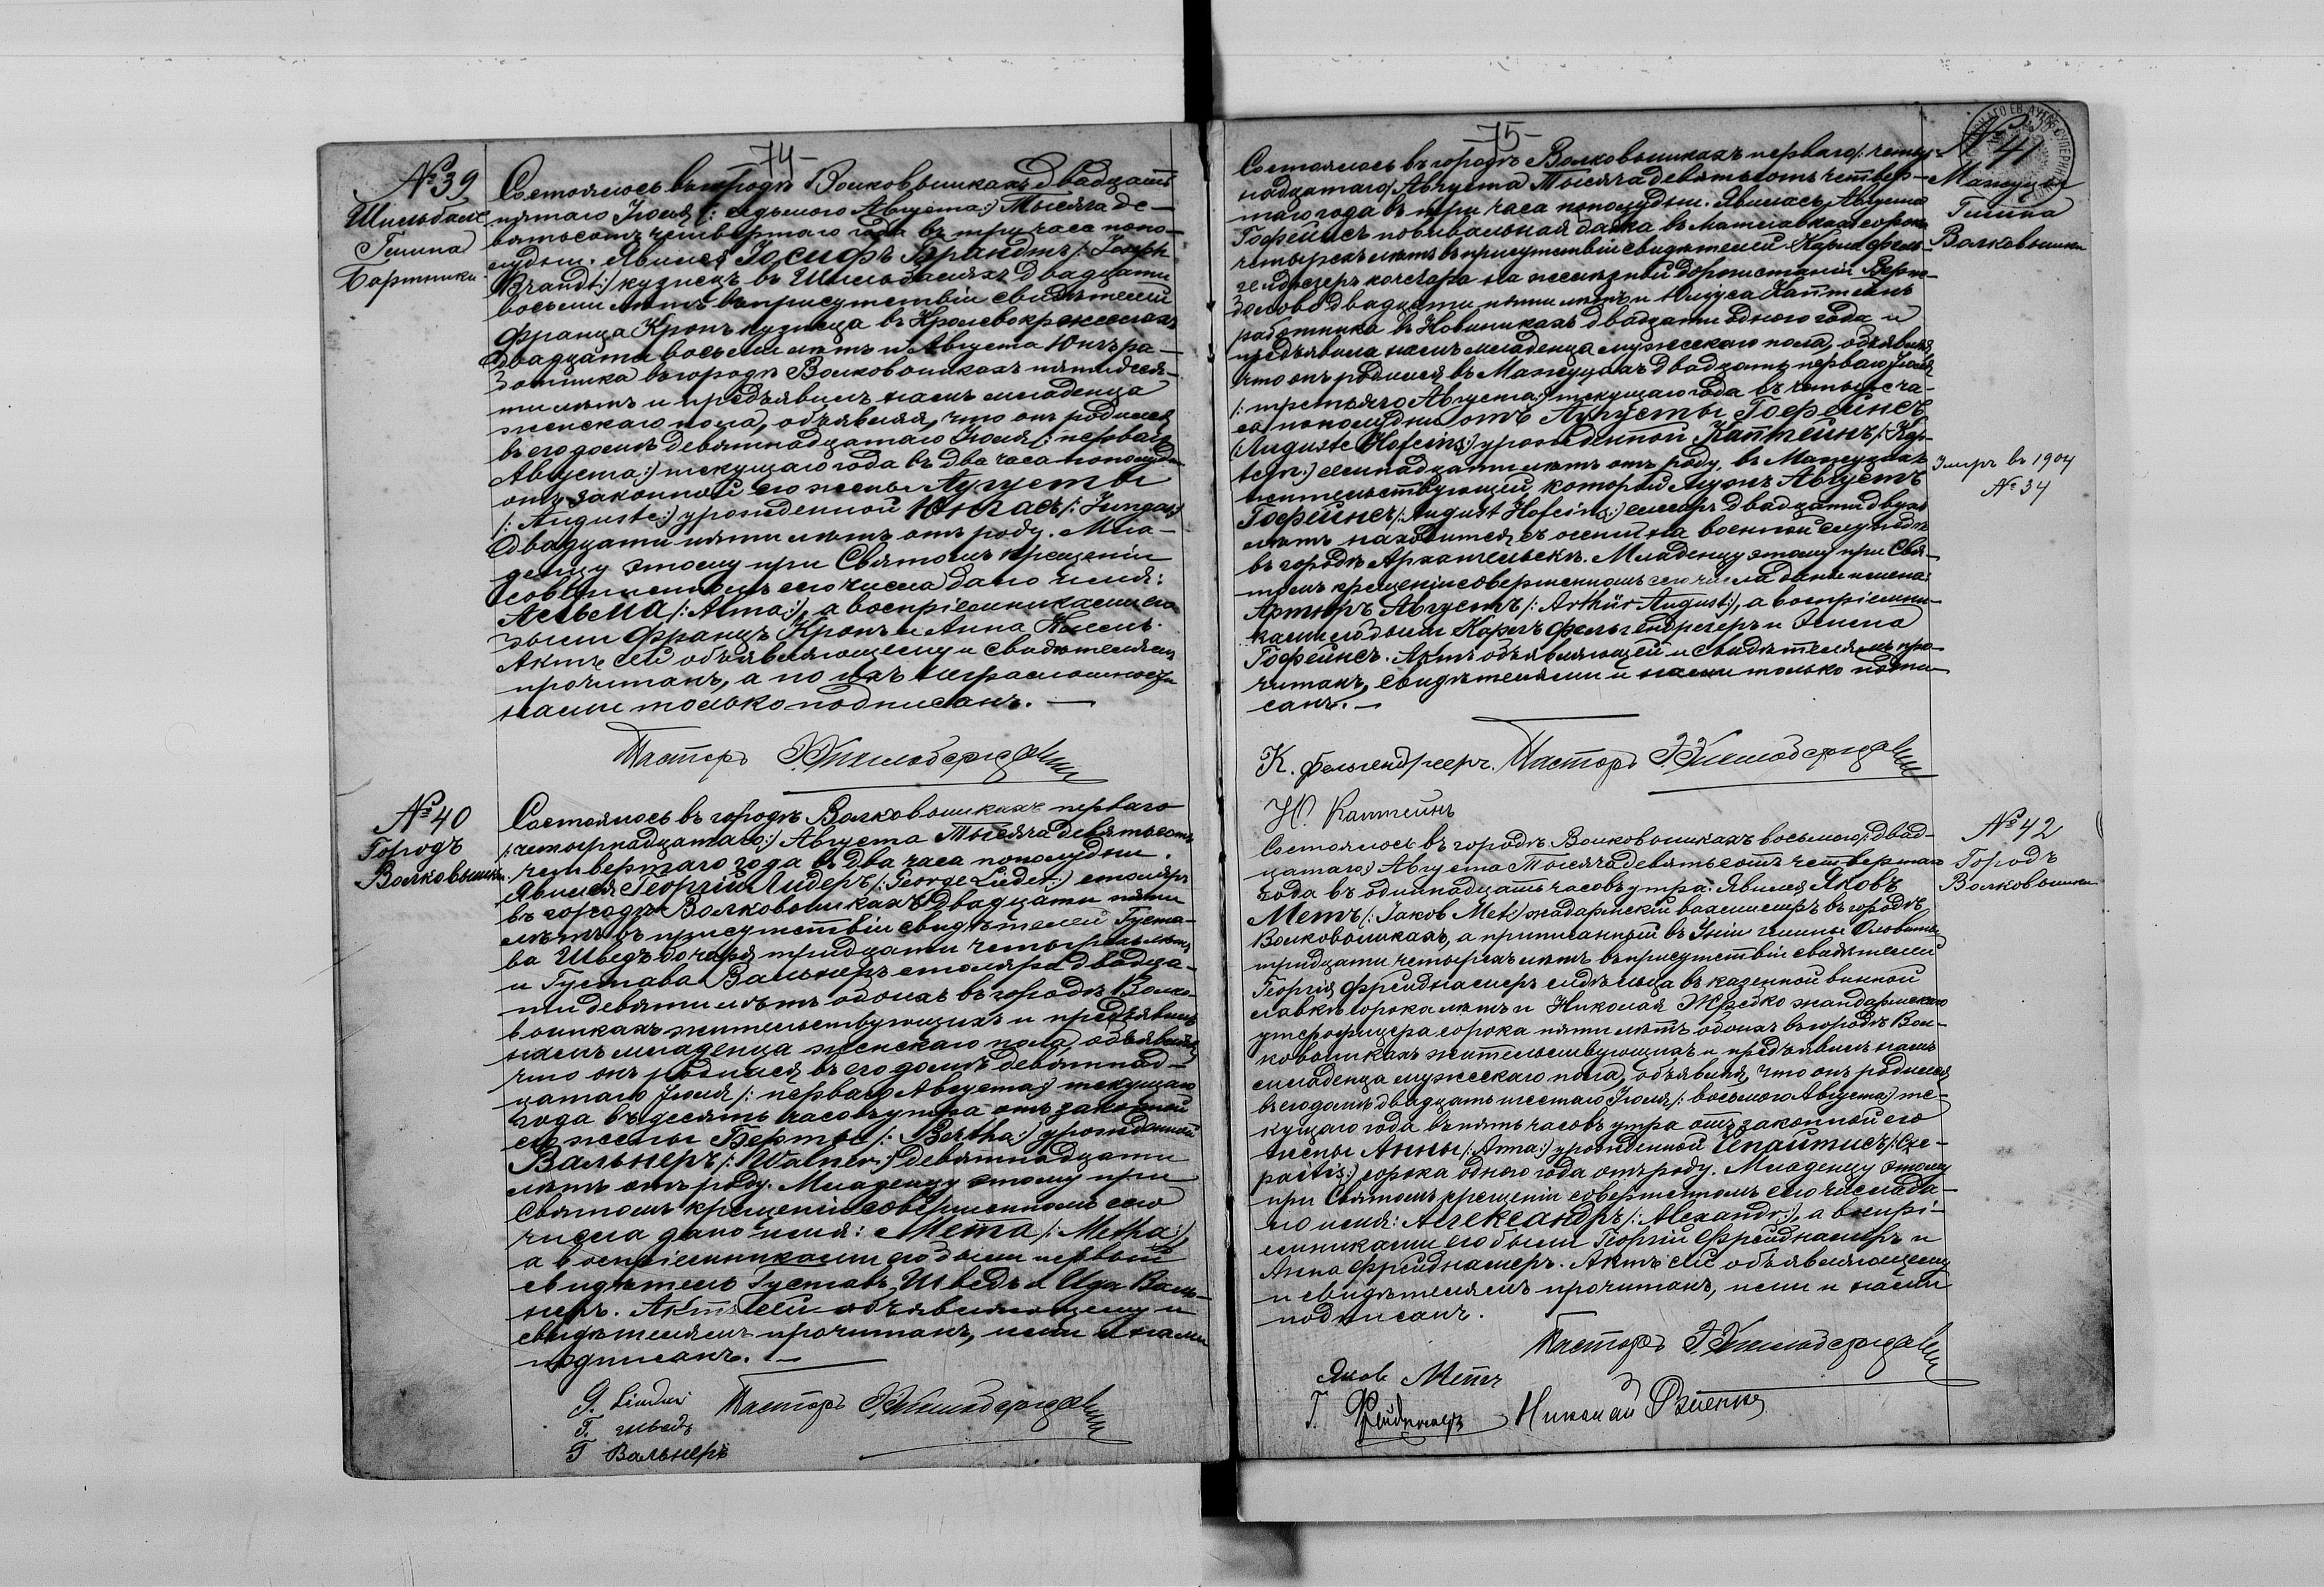 -74-
№ 39
Шильбале
Гмина
Бартники
Состоялось въ городѣ Волковышкахъ двадцать
пятаго Іюля /: седьмого Августа :/ Тысяча де-
вятьсотъ четвертаго года въ три часа попо-
лудни. Явился Іосифъ Брандтъ /: Joseph
Brandt :/ кузнецъ въ Шильбаляхъ двадцати
восьми лѣтъ въ присутствіи свидѣтелей
Франца Кронъ кузнеца въ Кролевокржеслахъ
двадцати восьми лѣтъ и Августа Юнгъ ра-
ботника въ городѣ Волковышкахъ пятидеся-
ти лѣтъ и предъявилъ намъ младенца
женскаго пола, объявляя, что онъ родился
въ его домѣ девятнадцатаго Іюля /: перваго
Августа :/ текущаго года въ два часа пополудни
отъ законной его жены Аугусты
/: Auguste :/ урожденной Юнгасъ /: Jungas :/
двадцати пяти лѣтъ отъ роду. Мла-
денцу этому при Святомъ крещеніи
совершенномъ сего числа дано имя:
Альма /: Alma :/, а воспріемниками его
были Францъ Кронъ и Анна
Актъ сей объявляющему и свидѣтелямъ
прочитанъ, а по ихъ неграмотности
нами только подписанъ. —
Пасторъ
№ 40
Городъ
Волковышки
Состоялось въ городѣ Волковышкахъ перваго
/: четырнадцатаго :/ Августа Тысяча девятьсотъ
четвертаго года въ два часа пополудни.
Явился Георгій Лидеръ /: George Lieder :/ столяръ
въ городѣ Волковышкахъ двадцати пяти
лѣтъ въ присутствіи свидѣтелей Густа-
ва Шведъ бочаря тридцати четырехъ лѣтъ
и Густава Вальнеръ столяра двадца-
ти девяти лѣтъ обоихъ въ городѣ Волко-
вышкахъ жительствующихъ и предъявилъ
намъ младенца женскаго пола, объявляя,
что онъ родился въ его домѣ девятнад-
цатаго Іюля /: перваго Августа :/ текущаго
года въ десять часовъ утра отъ законной
его жены Берты /: Bertha :/ урожденной
Вальнеръ /: Walner :/ девятнадцати
лѣтъ отъ роду. Младенцу этому при
Святомъ крещеніи совершенномъ сего
числа дано имя: Мета /: Metha :/,
а воспріемниками его были первый
свидѣтель Густавъ Шведъ и Ида Валь-
неръ. Актъ сей объявляющему и
свидѣтелямъ прочитанъ, ими и нами
подписанъ. —
G. Lieder Пасторъ
Г. шведъ
Г Вальнеръ
-75-
№ 41
Мажуцы
Гмина
Волковышки
Состоялось въ городѣ Волковышкахъ перваго /: четыр-
надцатаго/ Августа Тысяча девятьсотъ четвер-
таго года въ три часа пополудни. Явилась Августа
Гофейнсъ повивальная бабка въ Матлавкахъ сорока
четырехъ лѣтъ въ присутствіи свидѣтелей Карла Фель-
гендреэръ кочегара на желѣзной дорогѣ станціи Верж-
болово двадцати пяти лѣтъ и Юліуса Каптейнъ
работника въ Новиникахъ двадцати одного года и
предъявила намъ младенца мужескаго пола, объявляя,
что онъ родился въ Мажуцахъ двадцать перваго Іюля
/: третьяго Августа :/ текущаго года въ четыре ча-
са пополудни отъ Аугусты Гофейнсъ
/Auguste Hofeins :/ урожденной Каптейнъ /: Kap-
tejn :/ семнадцати лѣтъ отъ роду, въ Мажуцахъ
жительствующей, которой мужъ Августъ
Гофейнсъ /: August Hofeins :/ двадцати двухъ
лѣтъ находится съ осени на военной службѣ
въ городѣ Архангельскѣ. Младенцу этому при Свя-
томъ крещеніи совершенномъ сего числа даны имена:
Артуръ Августъ /: Arthür August :/, а воспріемни-
ками его были Карлъ Фельгендреэръ и Эмма
Гофейнсъ. Актъ объявляющей и свидѣтелямъ про-
читанъ, свидѣтелями и нами только подпи-
санъ. —
Умеръ въ 1904
№ 34
К. Фельгендреерг. Пасторъ
Ю. Каптейнъ
№ 42
Городъ
Волковышки
Состоялось въ городѣ Волковышкахъ восьмого /: двад-
цатаго/ Августа Тысяча девятьсотъ четвертаго
года въ одинадцать часовъ утра. Явился Яковъ
Метъ /: Jakob Met :/ жандармскій вахмистръ въ городѣ
Волковышкахъ, а приписанный въ гмины
тридцати четырехъ лѣтъ въ присутствіи свидѣтелей
Георгія Фрейднамеръ сидѣльца въ казенной винной
лавкѣ сорока лѣтъ и Николая жандармскаго
унтерофицера сорока пяти лѣтъ обоихъ въ городѣ Вол-
ковышкахъ жительствующихъ и предъявилъ намъ
младенца мужескаго пола, объявляя, что онъ родился
въ его домѣ двадцать шестаго Іюля /: восьмого Августа :/ те-
кущаго года въ пять часовъ утра отъ законной его
жены Анны /: Anna :/ урожденной Чепайтисъ /: Cze-
paitis :/ сорока одного года отъ роду. Младенцу этому
при Святомъ крещеніи совершенномъ сего числа да-
но имя: Александръ /: Alexandr :/, а воспрі-
емниками его были Георгій Фрейднамеръ и
Анна Фрейднамеръ. Актъ сей объявляющему
и свидѣтелямъ прочитанъ, ими и нами
подписанъ.
Пасторъ
Яковъ Метъ
Г. Фрейднамеръ Николай